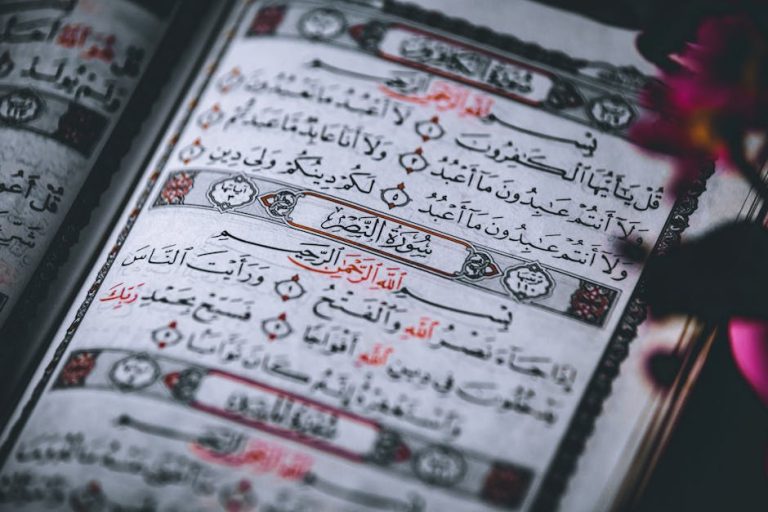 سُورَةُ الْكَافِرُونَ
بِسْمِ اللَّهِ الرَّحْمَٰنِ الرَّحِيمِ
قُلْ يَٰٓأَيُّهَا ٱلْكَٰفِرُونَ ١ لَآ أَعْبُدُ مَا تَعْبُدُونَ ٢
وَلَآ أَنتُمْ عَٰبِدُونَ مَآ أَعْبُدُ ٣ وَلَآ أَنَا۠ عَابِدٌ مَّا عَبَدتُّمْ ٤
وَلَآ أَنتُمْ عَٰبِدُونَ مَآ أَعْبُدُ ٥ لَكُمْ دِينُكُمْ وَلِىَ دِينِ ٦
سُورَةُ النَّصْرِ
بِسْمِ اللَّهِ الرَّحْمَٰنِ الرَّحِيمِ
إِذَا جَآءَ نَصْرُ ٱللَّهِ وَٱلْفَتْحُ ١ وَرَأَيْتَ ٱلنَّاسَ
يَدْخُلُونَ فِى دِينِ ٱللَّهِ أَفْوَاجًا ٢ فَسَبِّحْ بِحَمْدِ رَبِّكَ
وَٱسْتَغْفِرْهُ إِنَّهُۥ كَانَ تَوَّابًۢا ٣
بِسْمِ اللَّهِ الرَّحْمَٰنِ الرَّحِيمِ
قُلْ هُوَ ٱللَّهُ
وَلَمْ يُولَدْ
قُلْ أَعُوذُ